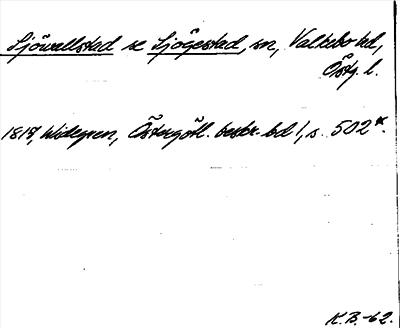 Sjöwallstad se Sjögestad, sn, Valkebo hd,
Östg. l.
1817, Widegren, Östergötl. beskr. bd 1, s. 502*.
K.B.-62.